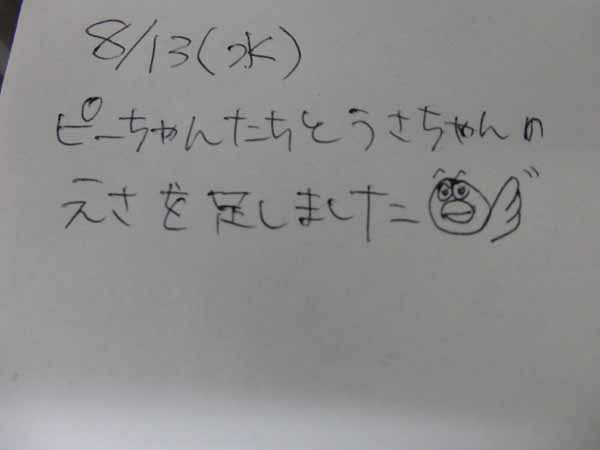 8/13(水)
ピーちゃんたちとうさちゃんの
えさを足しました